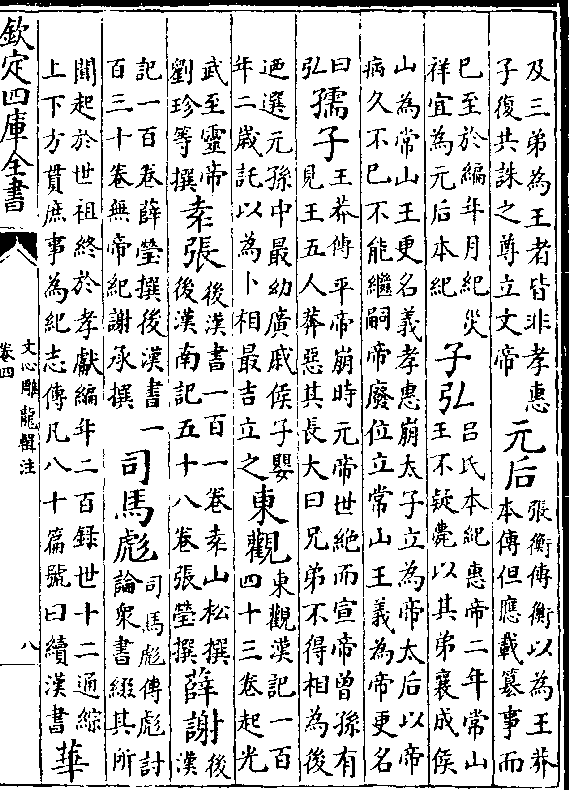 及三弟為王者皆非孝惠
子復共誅之尊立文帝
元后
張衡傳衡以為王莽
本傳但應載篡事而
巳至於編年月紀災
祥宜為元后本紀
子弘
吕氏本紀惠帝二年常山
王不疑薨以其弟襄成侯
山為常山王更名義孝惠崩太子立為帝太后以帝
病久不已不能繼嗣帝廢位立常山王義為帝更名
曰
弘
孺子
王莽傳平帝崩時元帝世絶而宣帝曾孫有
見王五人莽惡其長大曰兄弟不得相為後
廼選元孫中最幼廣戚侯子嬰
年二歲託以為卜相最吉立之
東觀
東觀漢記一百
四十三卷起光
武至靈帝
劉珍等撰
袁張
後漢書一百一卷袁山松撰
後漢南記五十八卷張瑩撰
薛謝
後
漢
記一百卷薛瑩撰後漢書一
百三十卷無帝紀謝承撰
司馬彪
司馬彪傳彪討
論衆書綴其所
聞起於世祖終於孝獻編年二百録世十二通綜
上下方貫庶事為紀志傳凡八十篇號曰續漢書
華
欽定四庫全書
文心雕龍輯注
卷四
八